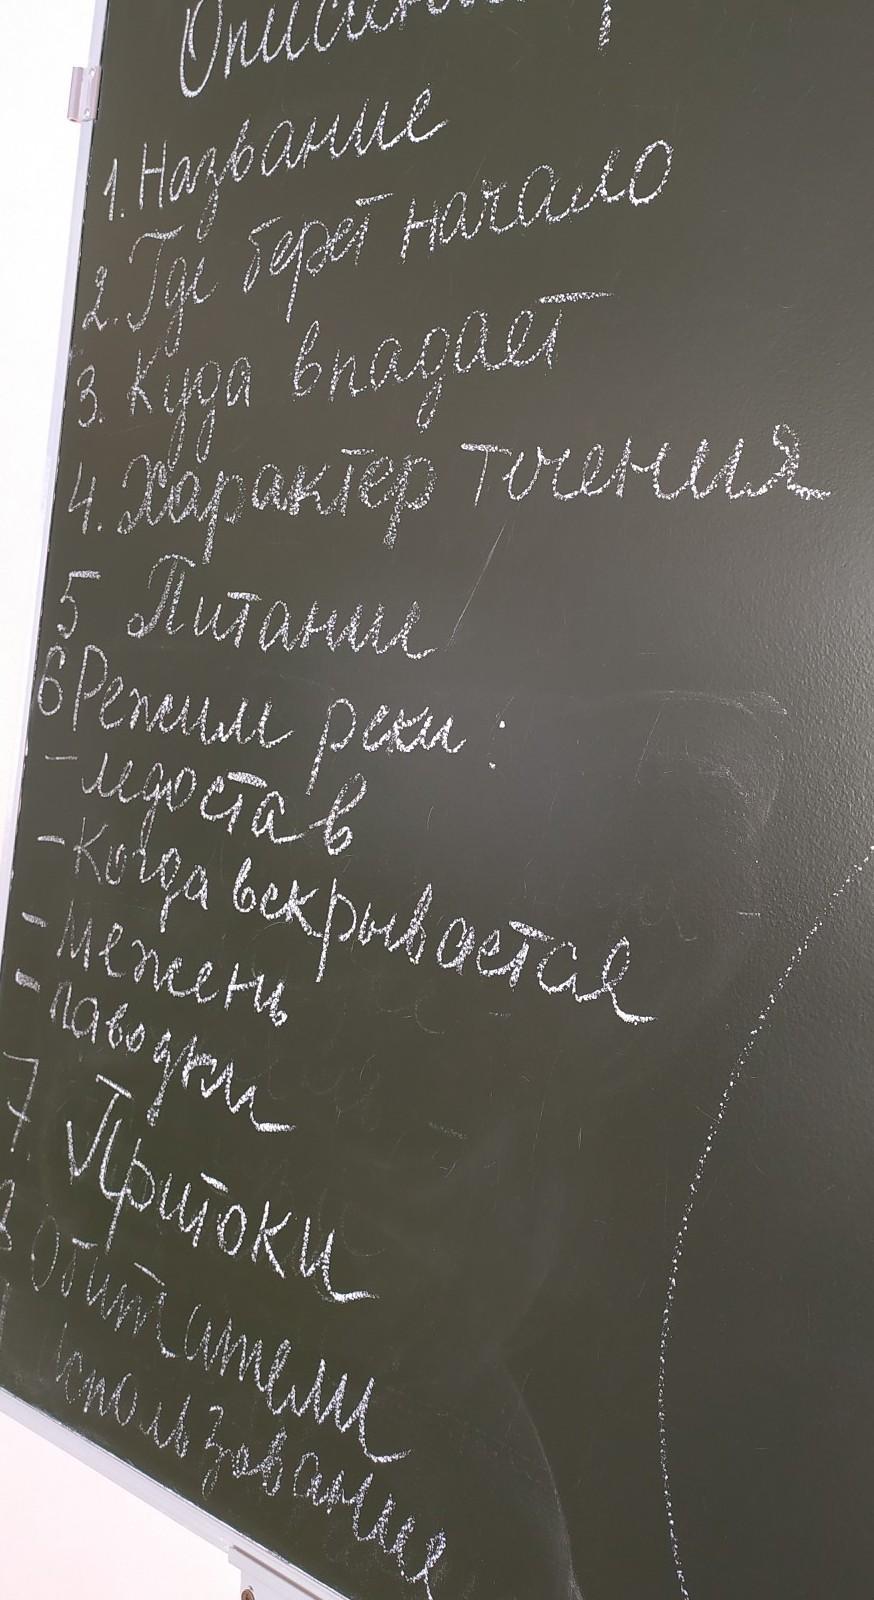 Описание
1. Название
2. Где берет начало
3. Куда впадает
4. Характер течения
5 Питание
6 Режим реки:
- ледостав
- Когда вскрывается
- Межень
- паводки
7. Притоки
8 Обитатели
Использование